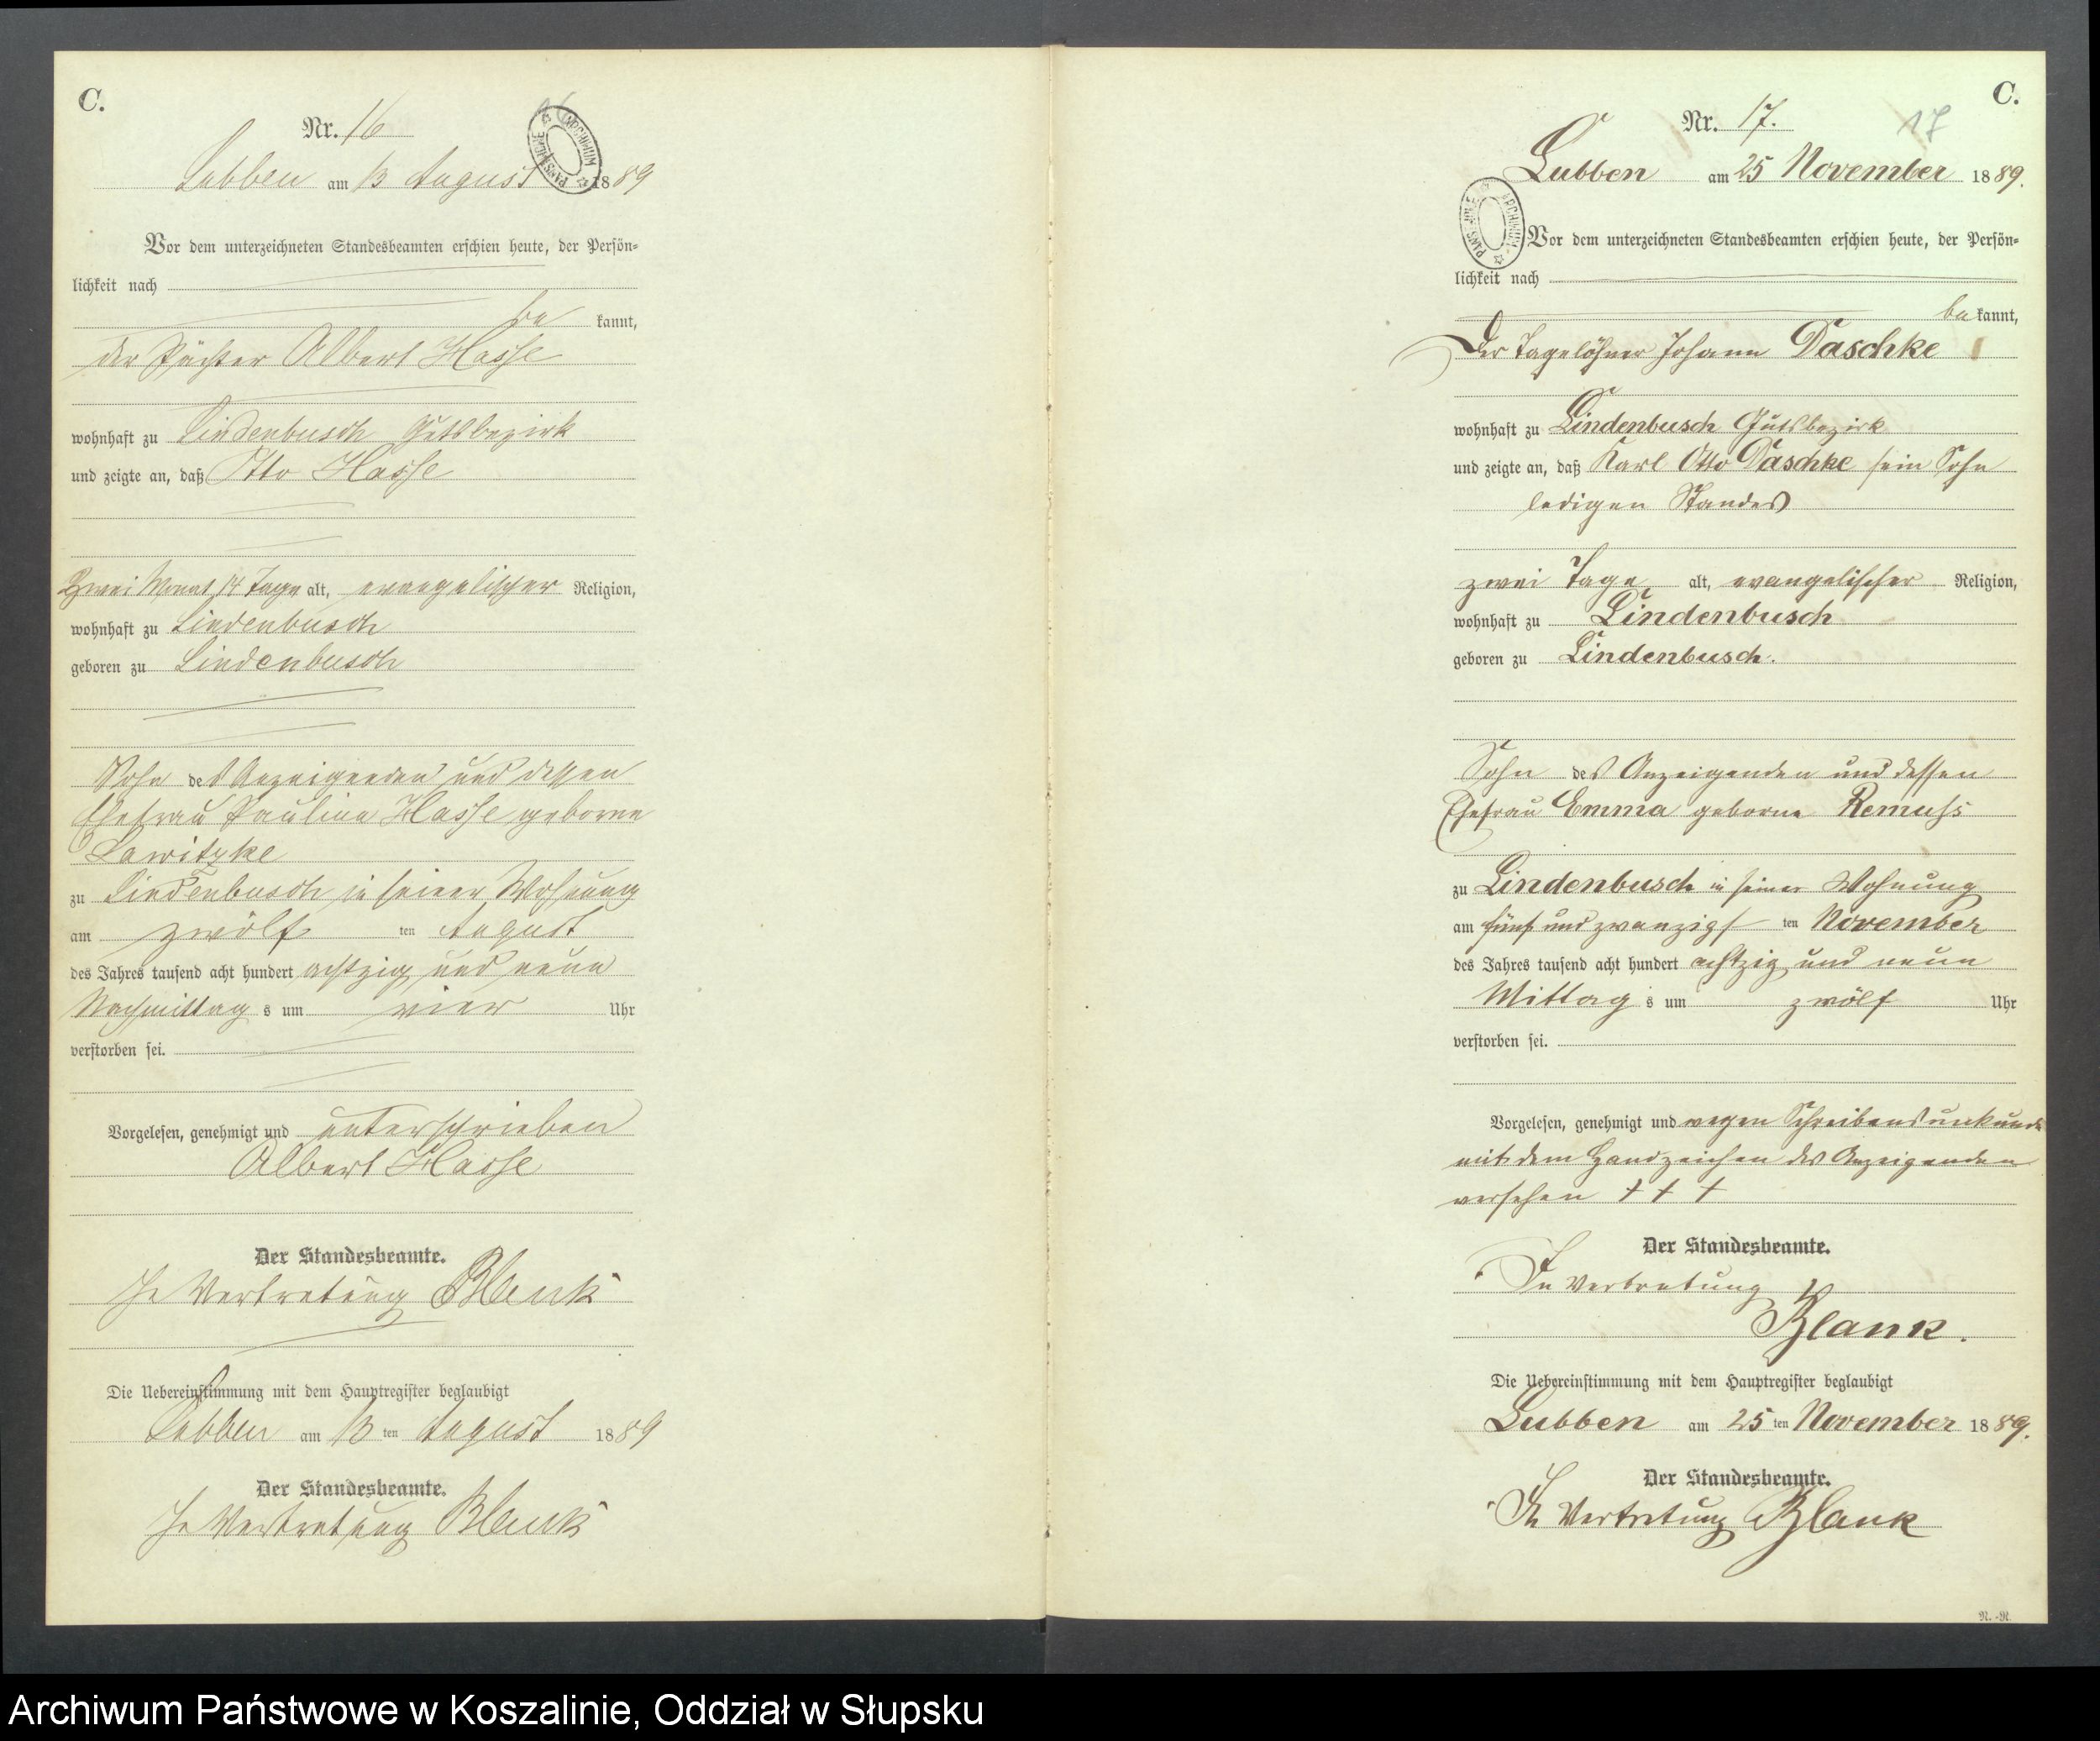 C.
Nr. 16
Lubben am 13 August 1889
Vor dem unterzeichneten Standesbeamten erschien heute, der Persön-
lichkeit nach
be kannt,
der Pächter Albert Hasse
wohnhaft zu Lindenbusch Gutsbezirk
und zeigte an, daß Otto Hasse
Zwei Monat 14 Tage alt, evangelischer Religion,
wohnhaft zu Lindenbusch
geboren zu Lindenbusch
Sohn des Anzeigenden und dessen
Ehefrau Pauline Hasse geborne
Lawitzke
zu Lindenbusch in seiner Wohnung
am zwölf ten August
des Jahres tausend acht hundert achtzig und neun
Nachmittag s um vier Uhr
verstorben sei.
Vorgelesen, genehmigt und unterschrieben
Albert Hasse
Der Standesbeamte.
In Vertretung Blank
Die Uebereinstimmung mit dem Hauptregister beglaubigt
Lubben am 13 ten August 1889
Der Standesbeamte.
In Vertretung Blank
ARCHIWUM PAŃSTWOWE
C.
Nr. 17.
17
Lubben am 25 November 1889.
ARCHIWUM PAŃSTWOWE
Vor dem unterzeichneten Standesbeamten erschien heute, der Persön-
lichkeit nach
be kannt,
Der Tagelöhner Johann Daschke
wohnhaft zu Lindenbusch Gutsbezirk
und zeigte an, daß Karl Otto Daschke sein Sohn
ledigen Standes
zwei Tage alt, evangelischer Religion,
wohnhaft zu Lindenbusch
geboren zu Lindenbusch.
Sohn des Anzeigenden und dessen
Ehefrau Emma geborne Remuss
zu Lindenbusch in seiner Wohnung
am fünf und zwanzigs ten November
des Jahres tausend acht hundert achtzig und neun
Mittag s um zwölf Uhr
verstorben sei.
Vorgelesen, genehmigt und wegen Schreibensunkunde
mit dem Handzeichen des Anzeigenden
versehen + + +
Der Standesbeamte.
In Vertretung
Blank.
Die Uebereinstimmung mit dem Hauptregister beglaubigt
Lubben am 25 ten November 1889.
Der Standesbeamte.
In Vertretung Blank
N.-R.
Archiwum Państwowe w Koszalinie, Oddział w Słupsku